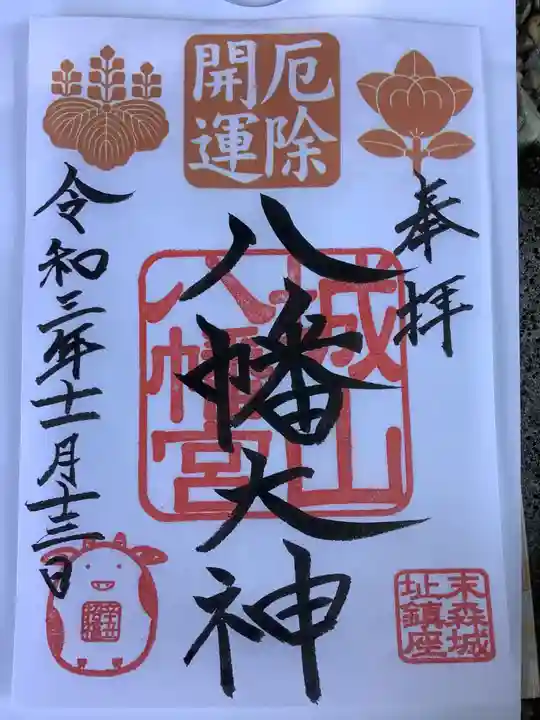 奉拝
厄除
開運
八幡大神
城山
八幡宮
令和三年十一月十三日
末森城
址鎮座